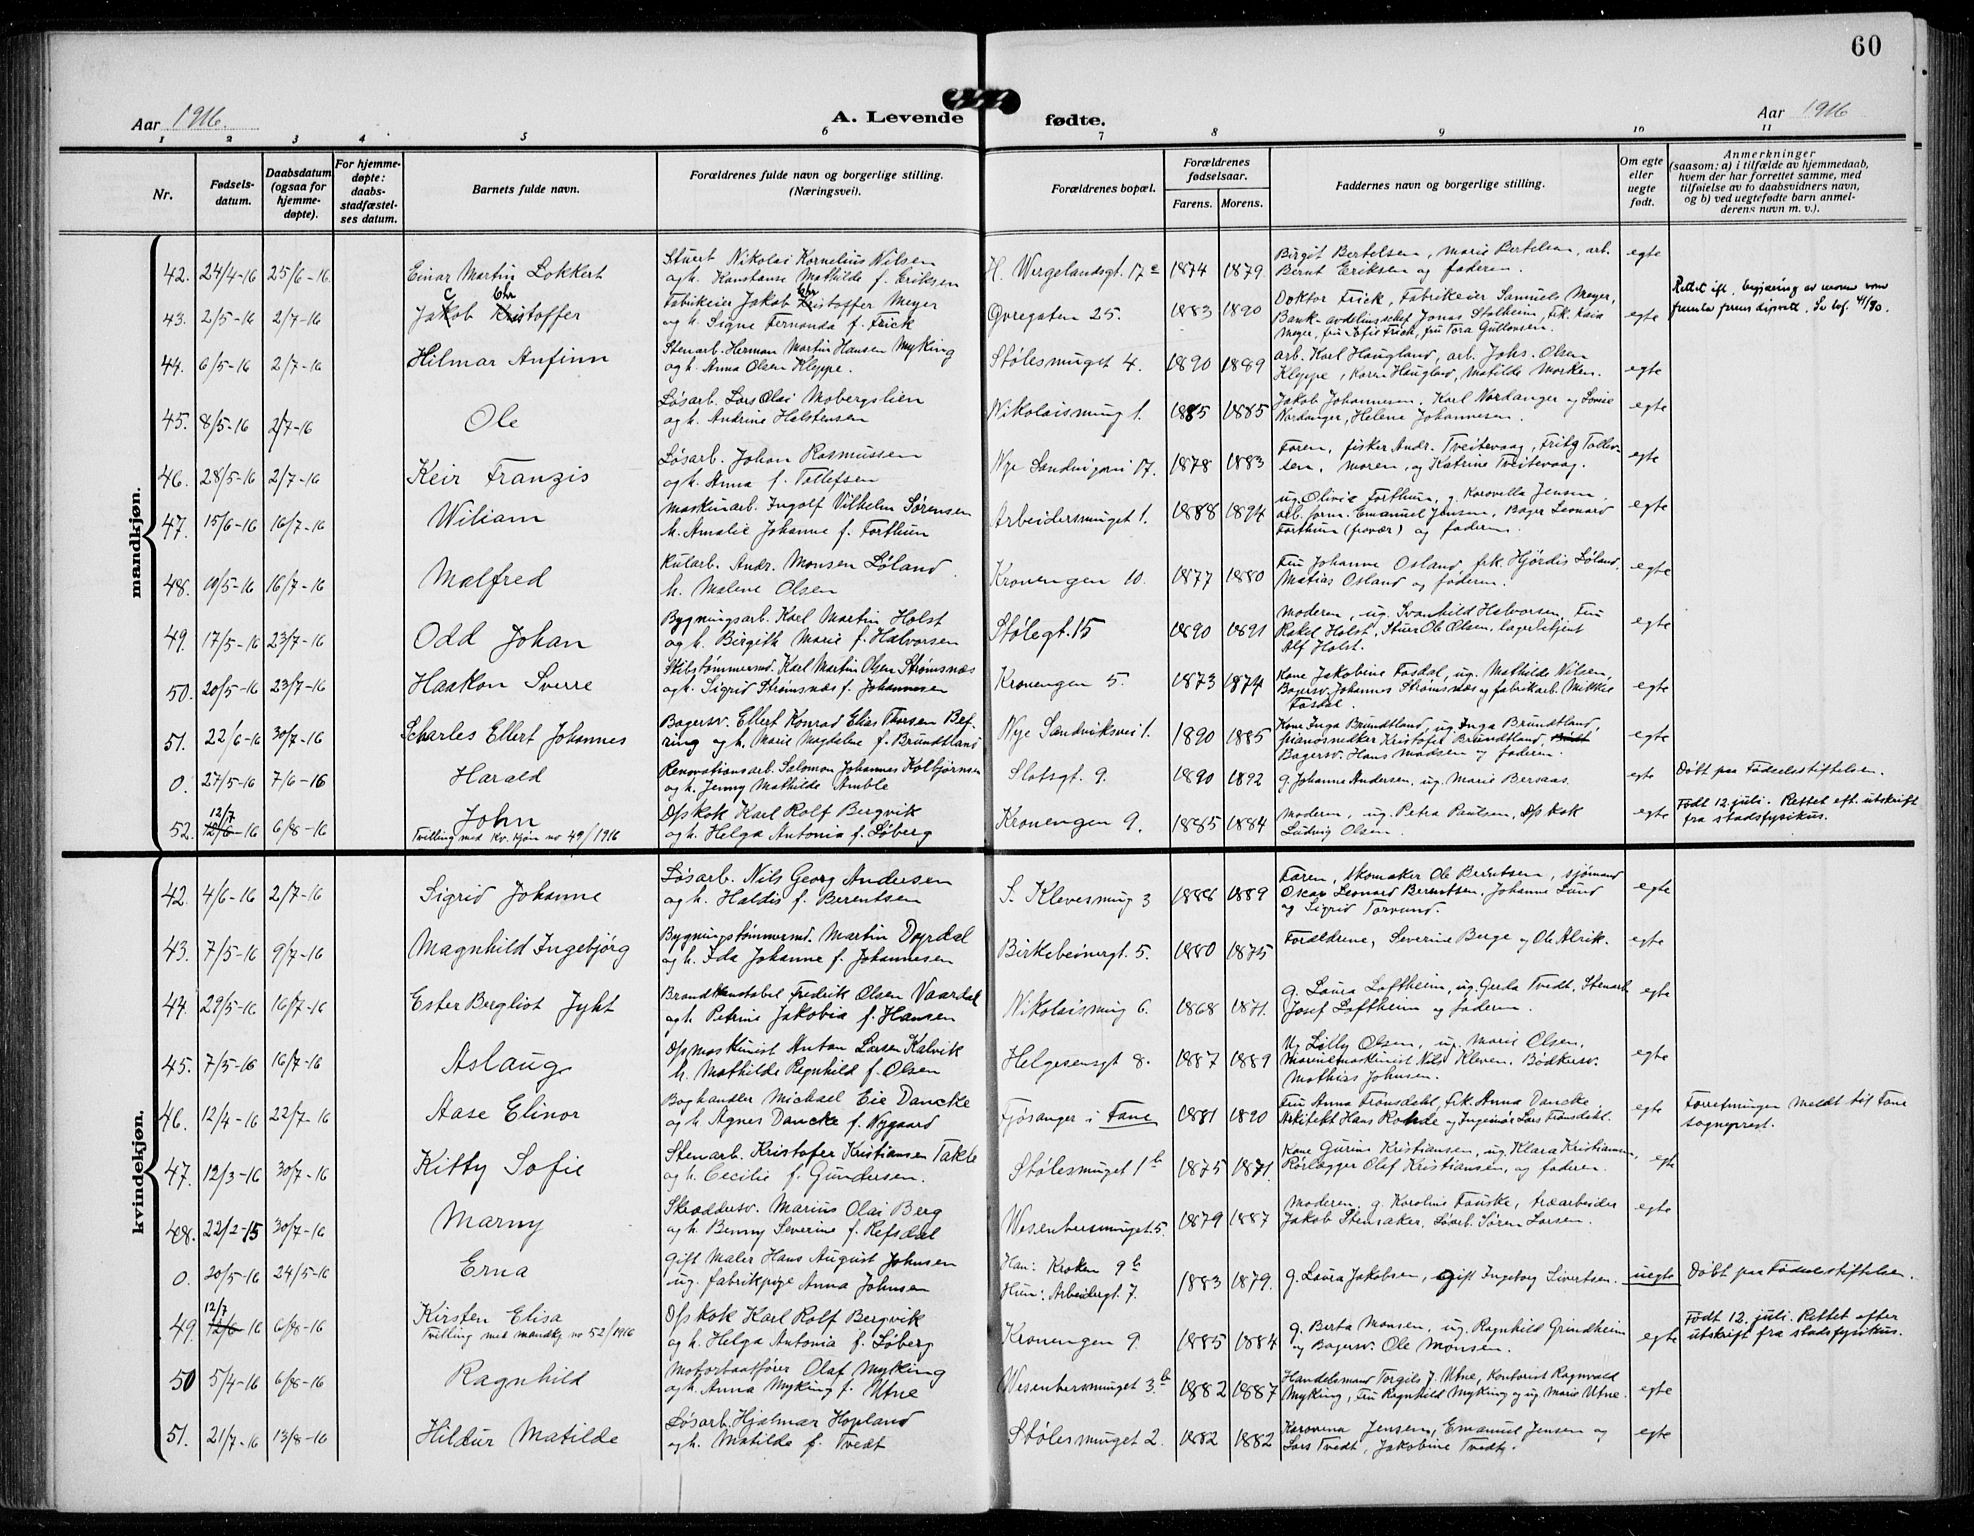 60
Aar 1916.
A. Levende fødte.
Aar 1916
1 2 3 4 5 6 7 8 9 10 11
Nr.
Fødsels-
datum.
Daabsdatum
(ogsaa for
hjemme-
døpte).
For hjemme-
døpte:
daabs-
stadfæstel-
ses datum.
Barnets fulde navn.
Forældrenes fulde navn og borgerlige stilling.
(Næringsvei).
Forældrenes bopæl.
Forældrenes
fødselsaar.
Farens. Morens.
Faddernes navn og borgerlige stilling.
Om egte
eller
uegte
født.
Anmerkninger
(saasom: a) i tilfælde av hjemmedaab,
hvem der har forrettet samme, med
tilføielse av to daabsvidners navn,
og b) ved uegtefødte barn anmel-
derens navn m. v.).
mandkjøn.
42. 24/4-16 25/6-16 Einar Martin Lokkert
Stuert Nikolai Kornelius Nilsen
og h. Konstanse Mathilde f. Eriksen
H. Wergelandsgt. 17a 1874 1879
Birgit Bertelsen, Marie Bertelsen, arb.
Bernt Eriksen og faderen.
egte
43. 2/5-16 2/7-16 Jakob Kristoffer
c Chr
Fabrikeier Jakob Kristoffer Meyer
Chr
og h. Signe Fernanda f. Frick
Øvregaten 25. 1883 1890
Doktor Frick, Fabrikeier Samuels Meyer,
Bank-avdelingschef Jonas Stalheim, frk. Kaia
Meyer, fru Sofie Frick, fru Tora Gullonsen.
egte
Rettet eft. begjæring av moren som
44. 6/5-16 2/7-16 Hilmar Anfinn
Stenarb. Herman Martin Hansen Myking
og h. Anna Olsen Kleppe.
Stølesmuget 4. 1890 1889
arb. Karl Haugland, arb. Johs. Olsen
Kleppe, Karen Haugland, Matilde Morken.
egte
45. 8/5-16 2/7-16 Ole
Løsarb. Lars Olai Mobergslien
og h. Andrine Halstensen
Nikolaismug 1. 1885 1885
Jakob Johannesen, Karl Nordanger og Lovise
Nordanger, Helene Johannesen.
egte
46. 28/5-16 2/7-16 Keir Franzis
Løsarb. Johan Rasmussen
og h. Anna f. Tollefsen
Nye Sandvigsvei 17. 1878 1883
Faren, fisker Andr. Tveitevaag, Fritz Tollev-
sen, moren, og Katrine Tveitevaag.
egte
47. 15/6-16 16/7-16 Wiliam
Maskinarb. Ingolf Vilhelm Sørensen
h. Amalie Johanne f. Forthun
Arbeidersmuget 1. 1888 1894
ug. Olivia Forthun, g. Karovella Jensen,
arb. form. Emanuel Jensen, Bager Leonard
Forthun (fravær) og faderen.
egte
48. 19/5-16 16/7-16 Malfred
Kularb. Andr. Monsen Løland
h. Malene Olsen
Kronengen 10. 1877 1880
Fru Johanne Osland, frk. Hjørdis Løland,
Matias Osland og faderen.
egte
49. 17/5-16 23/7-16 Odd Johan
Bygningsarb. Karl Martin Holst
og h. Birgith Marie f. Halvorsen
Stølegt. 15 1890 1891
Moderen, ug. Svanhild Halvorsen, Fru
Rakel Holst, Stuer Ole Olsen, lagerbetjent
Alf Holst.
egte
50. 20/5-16 23/7-16 Haakon Sverre
Skibstømmermd. Karl Martin Olsen Strømsnæs
og h. Sigrid Strømsnæs f. Johannesen
Kronengen 5. 1873 1874
Kone Jakobine Fosdal, ug. Mathilde Nilsen,
Bagersv. Johannes Strømsnæs og fabrikarb. Mikkel
Fosdal.
egte
51. 22/6-16 30/7-16 Scharles Ellert Johannes
Bagersv. Ellert Konrad Elias Thorsen Bef-
ring og h. Marie Magdalene f. Brundtland
Nye Sandviksvei 1. 1890 1885
Kone Inga Brundtland, ug. Inga Brundtland,
pianosnedker Kristofer Brundtland
Bagersv. Hans Madsen og faderen.
egte
0. 27/5-16 7/6-16 Harald
Renovationsarb. Salomon Johannes Kolbjørnsen
og h. Jenny Mathilde Amble
Slotsgt. 9. 1890 1892
g. Johanne Andersen, ug. Marie Bersaas.
egte
Døbt paa Fødselsstiftelsen.
52. 12/7 12/6-16 6/8-16 John
Tvilling med kv. kjøn no 49/1916
Dpskok Karl Rolf Bergvik
og h. Helga Antonia f. Søberg
Kronengen 9. 1885 1884
Moderen, ug. Petra Paulsen, Dpskok
Ludvig Olsen.
egte
Født 12. juli. Rettet eft. utskrift
fra stadsfysikus.
kvindekjøn.
42. 4/6-16 2/7-16 Sigrid Johanne
Løsarb. Nils Georg Andersen
og h. Haldis f. Berentsen
S. Klevesmug 3 1888 1889
Faren, skomaker Ole Berentsen, sjømand
Oscar Leonard Berentsen, Johanne Lund
og Sigrid Torvund.
egte
43. 7/5-16 9/7-16 Magnhild Ingebjørg
Bygningstømmermd. Martin Dyrdal
og h. Ida Johanne f. Johannesen
Birkebeinergt. 5. 1880 1875
Forældrene, Severine Berge og Ole Alrik.
egte
44. 29/5-16 16/7-16 Ester Bergliot Jykt
Brandkonstabel Fredrik Olsen Vaardal
og h. Petrine Jakobia f. Hansen
Nikolaismug 6. 1868 1871.
g. Laura Loftheim, ug. Gerda Tvedt, Stenarb.
Josef Loftheim og faderen.
egte
45. 7/5-16 16/7-16 Aslaug
Dpmaskinist Anton Larsen Kalvik
h. Mathilde Ragnhild f. Olsen
Helgesensgt 8. 1887 1889
Ug. Lilly Olsen, ug. Marie Olsen,
Marinemaskinist Nils Kleven, Bødkersv.
Mathias Johnsen.
egte
46. 12/4-16 22/7-16 Aase Elinor
Boghandler Michael Eie Dancke
og h. Agnes Dancke f. Nygaard
Fjøsanger i Fane 1881 1890
Fru Anna Fronsdahl, frk. Anna Dancke,
Arkitekt Hans Rohde og Ingeniør Lars Fronsdahl.
egte
Forretningen meldt til Fane
sogneprest.
47. 12/3-16 30/7-16 Kitty Sofie
Stenarb. Kristofer Kristiansen Takle
og h. Cecilie f. Gundersen.
Stølesmuget 1b 1875 1871.
Kone Gurine Kristiansen, ug. Klara Kristiansen,
Rørlægger Olaf Kristiansen, og faderen.
egte
48. 22/2-15 30/7-16 Marny
Skræddersv. Marius Olai Berg
og h. Benny Severine f. Refsdal
Wesenbersmuget 5. 1879 1887
Moderen, g. Karoline Fauske, træarbeider
Jakob Stensaker, Løsarb. Søren Larsen.
egte
0. 20/5-16 24/5-16 Erna
Gift Maler Hans August Johnsen
ug. fabrikpige Anna Johnsen
Han: Kroken 9b
Hun: Arbeidergt 7. 1883 1879.
g. Laura Jakobsen, gift Ingeborg Sivertsen.
uegte
Døbt paa Fødselsstiftelsen.
49. 12/7 12/6-16 6/8-16 Kirsten Elisa
Tvilling med mandkj. no 52/1916
Dpskok Karl Rolf Bergvik
og h. Helga Antonia f. Søberg
Kronengen 9. 1885 1884
g. Berta Monsen, ug. Ragnhild Grindheim
og Bagersv. Ole Monsen.
egte
Født 12. juli. Rettet efter
utskrift fra stadsfysikus.
50 5/4-16 6/8-16 Ragnhild
Motorbaatfører Olaf Myking
og h. Anna Myking f. Utne
Wesenbersmuget 3b 1882 1887
Handelsmand Torgils J. Utne, Kontorist Ragnvald
Myking, Fru Ragnhild Myking og ug. Marie Utne.
egte
51. 21/7-16 13/8-16 Hildur Matilde
Løsarb. Hjalmar Hopland
og h. Matilde f. Tvedt
Stølesmuget 2. 1882 1882
Karovena Jensen, Emanuel Jensen og
Lars Tvedt, Jakobine Tvedt.
egte